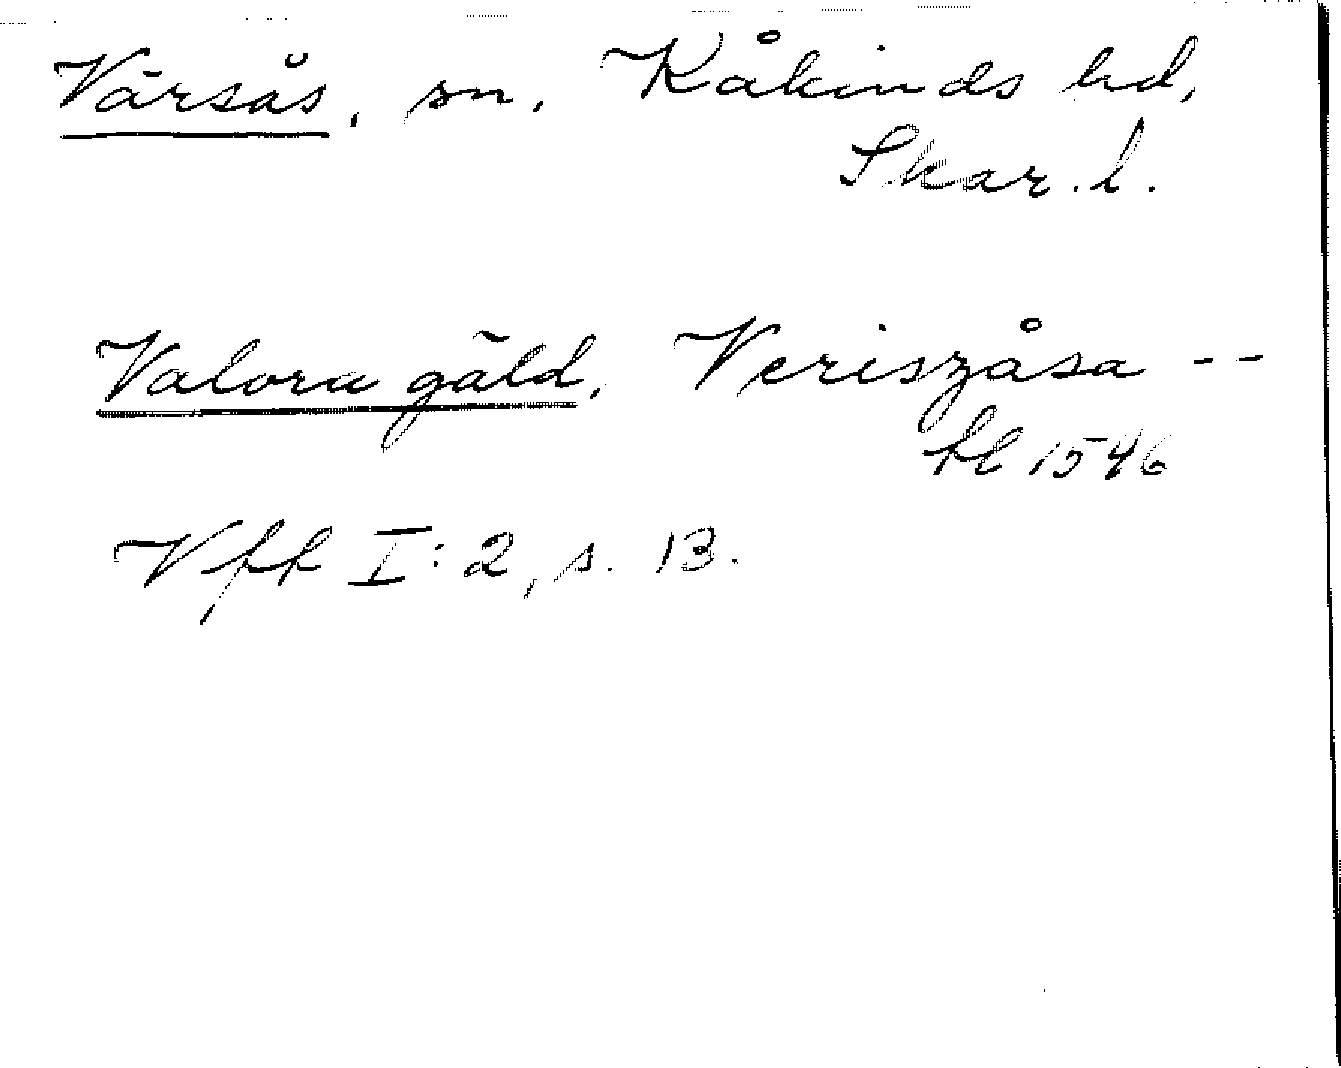 Värsås, sn, Kåkinds hd,
Skar. l.
Valora gäld, Veriszåsa --
fl 1546
Vff I: 2, s. 13.